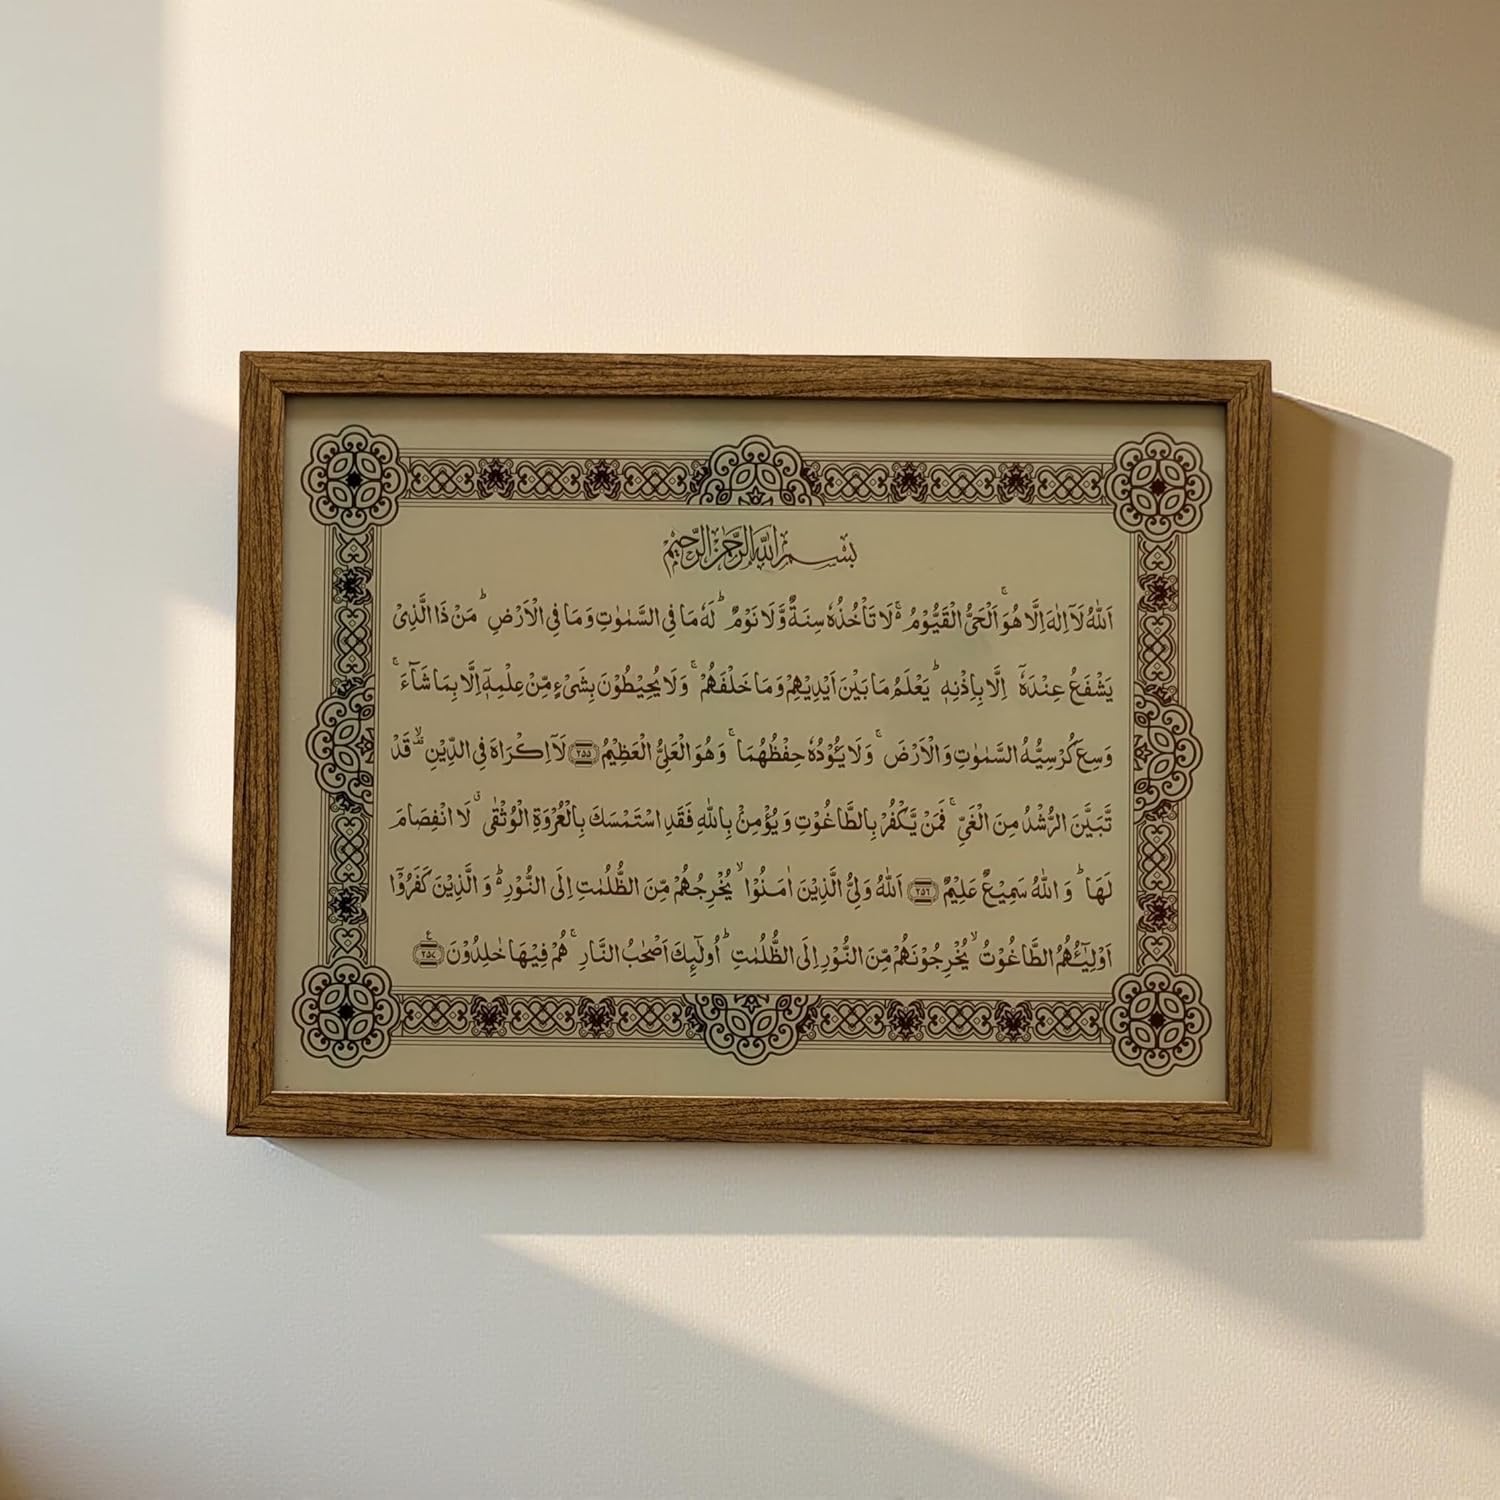 بِسْمِ اللهِ الرَّحْمٰنِ الرَّحِيْمِ
اَللهُ لَآ اِلٰهَ اِلَّا هُوَ ۚ اَلْحَيُّ الْقَيُّوْمُ ۚ۬ لَا تَاْخُذُهٗ سِنَةٌ وَّلَا نَوْمٌ ؕ لَهٗ مَا فِي السَّمٰوٰتِ وَمَا فِي الْاَرْضِ ؕ مَنْ ذَا الَّذِيْ
يَشْفَعُ عِنْدَهٗٓ اِلَّا بِاِذْنِهٖ ؕ يَعْلَمُ مَا بَيْنَ اَيْدِيْهِمْ وَمَا خَلْفَهُمْ ۚ وَلَا يُحِيْطُوْنَ بِشَيْءٍ مِّنْ عِلْمِهٖٓ اِلَّا بِمَا شَآءَ ۚ
وَسِعَ كُرْسِيُّهُ السَّمٰوٰتِ وَالْاَرْضَ ۚ وَلَا يَـُٔوْدُهٗ حِفْظُهُمَا ۚ وَهُوَ الْعَلِيُّ الْعَظِيْمُ ﴿۲۵۵﴾ لَآ اِكْرَاهَ فِي الدِّيْنِ ۟ۙ قَدْ
تَّبَيَّنَ الرُّشْدُ مِنَ الْغَيِّ ۚ فَمَنْ يَّكْفُرْ بِالطَّاغُوْتِ وَيُؤْمِنْۢ بِاللهِ فَقَدِ اسْتَمْسَكَ بِالْعُرْوَةِ الْوُثْقٰى ۗ لَا انْفِصَامَ
لَهَا ؕ وَاللهُ سَمِيْعٌ عَلِيْمٌ ﴿۲۵۶﴾ اَللهُ وَلِيُّ الَّذِيْنَ اٰمَنُوْا ۙ يُخْرِجُهُمْ مِّنَ الظُّلُمٰتِ اِلَى النُّوْرِ ۬ؕ وَالَّذِيْنَ كَفَرُوْٓا
اَوْلِيٰٓـُٔهُمُ الطَّاغُوْتُ ۙ يُخْرِجُوْنَهُمْ مِّنَ النُّوْرِ اِلَى الظُّلُمٰتِ ؕ اُولٰٓئِكَ اَصْحٰبُ النَّارِ ۚ هُمْ فِيْهَا خٰلِدُوْنَ ﴿۲۵۷﴾ ع